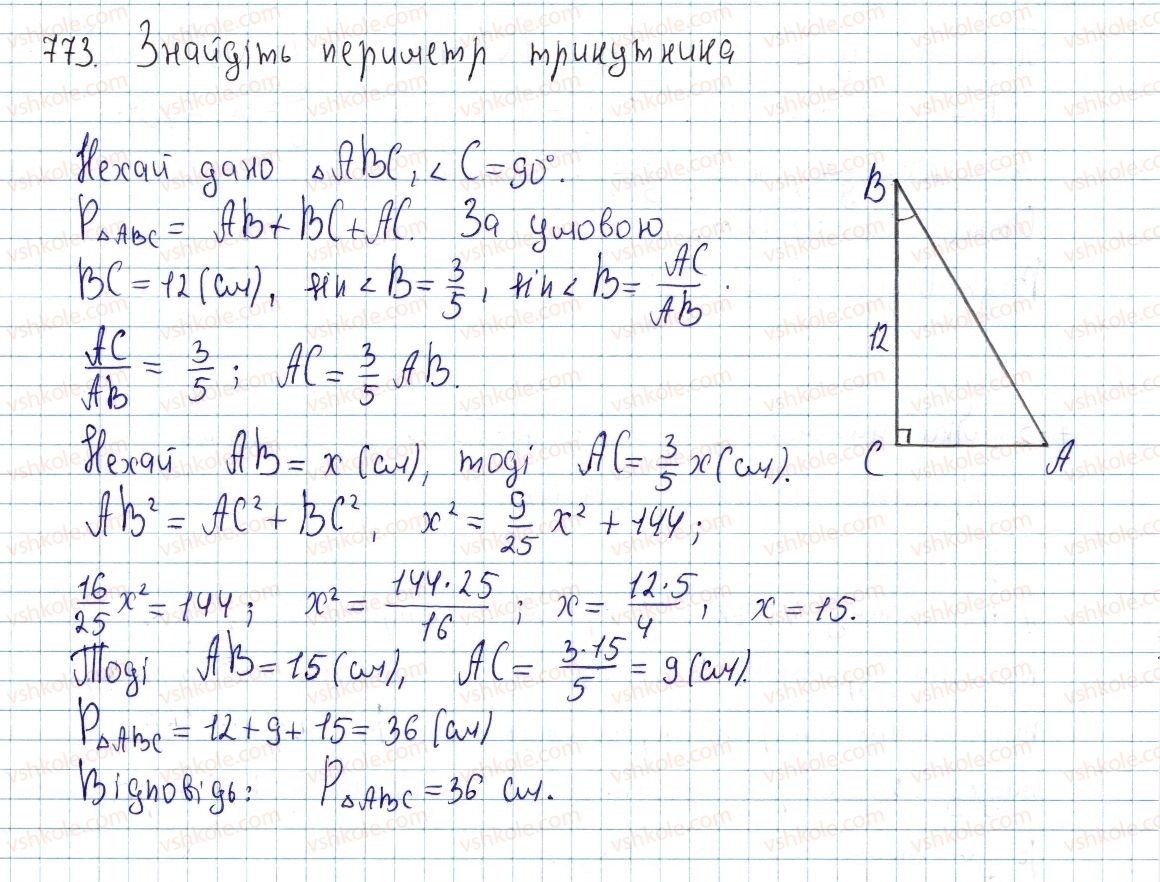 773. Знайдіть периметр трикутника
Нехай дано △ABC, ∠C = 90°.
P△ABC = AB + BC + AC. За умовою
BC = 12 (см), sin∠B = 3/5, sin∠B = AC/AB.
AC/AB = 3/5; AC = 3/5 AB.
Нехай AB = x (см), тоді AC = 3/5 x (см).
AB² = AC² + BC², x² = 9/25 x² + 144;
16/25 x² = 144; x² = 144·25/16; x = 12·5/4; x = 15.
Тоді AB = 15 (см), AC = 3·15/5 = 9 (см).
P△ABC = 12 + 9 + 15 = 36 (см)
Відповідь: P△ABC = 36 см.
B
12
C
A
vshkole.com